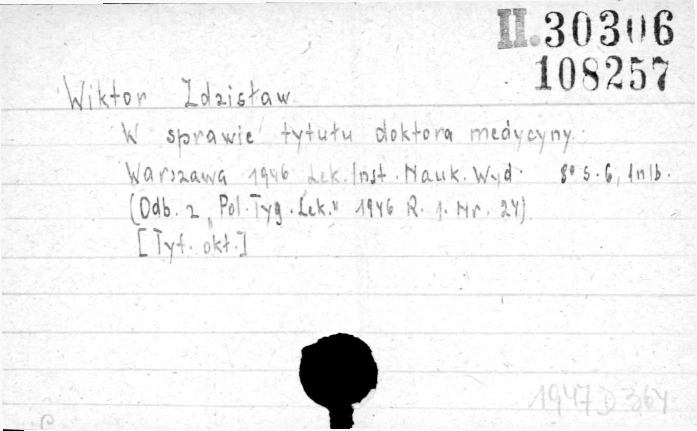 II.30306
108257
Wiktor Zdzisław
W sprawie tytułu doktora medycyny.
Warszawa 1946 Lek. Inst. Nauk. Wyd. 8° s. 6, 1nlb.
(Odb. z „Pol. Tyg. Lek." 1946 R. 1. Nr. 24)
[Tyt. okł.]
1947 D 364